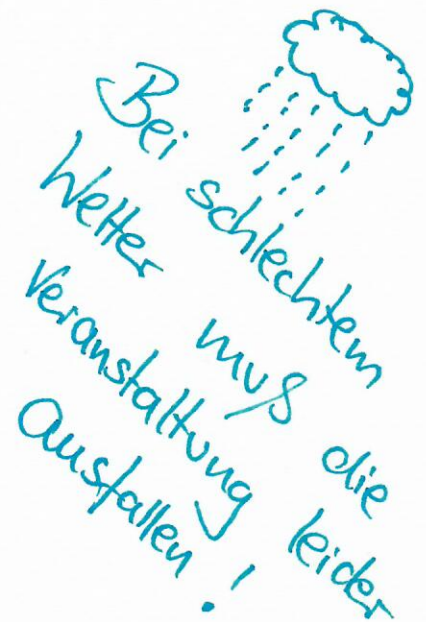 Bei schlechtem
Wetter muß die
Veranstaltung leider
ausfallen!